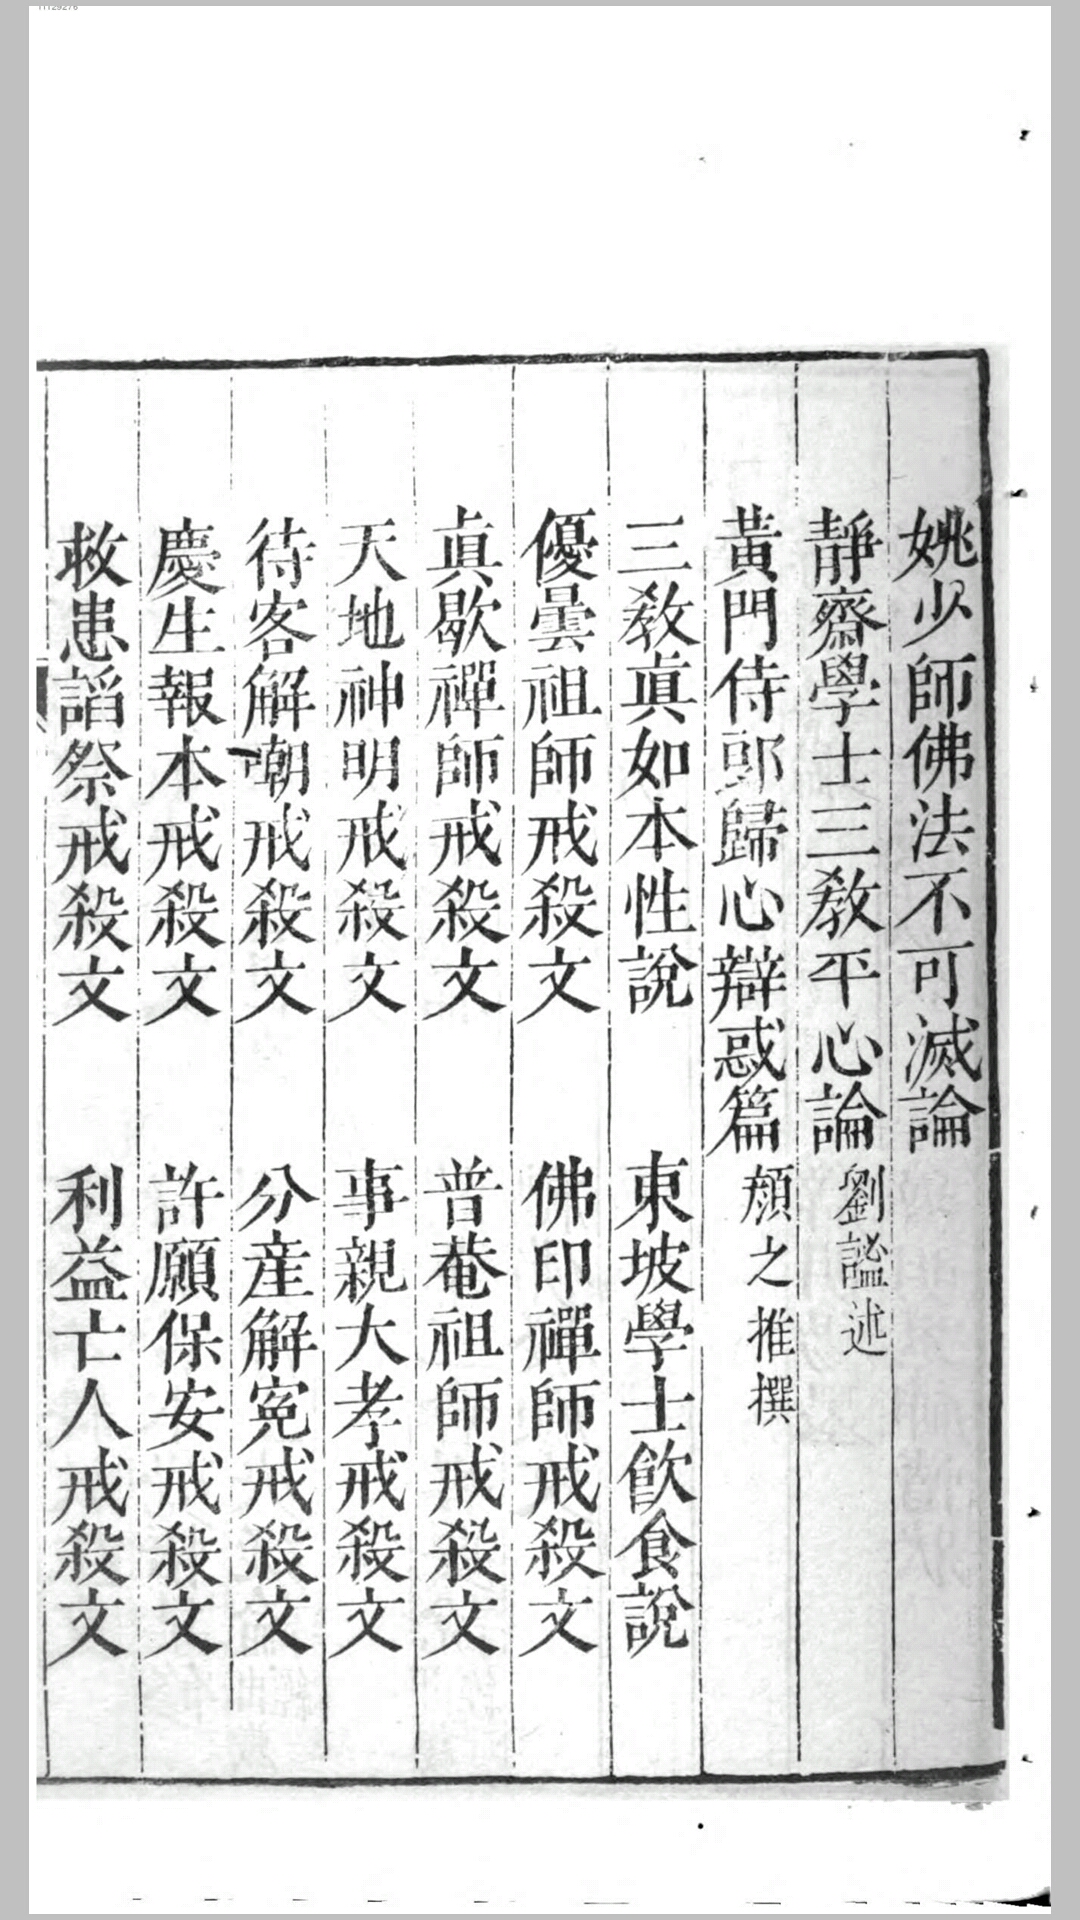 姚少師佛法不可滅論
靜齋學士三教平心論 劉謐述
黃門侍郎歸心辯惑篇 顏之推撰
三教真如本性說 東坡學士飲食說
優曇祖師戒殺文 佛印禪師戒殺文
真歇禪師戒殺文 普菴祖師戒殺文
天地神明戒殺文 事親大孝戒殺文
待客解嘲戒殺文 分産解寃戒殺文
慶生報本戒殺文 許願保安戒殺文
救患謟祭戒殺文 利益亡人戒殺文